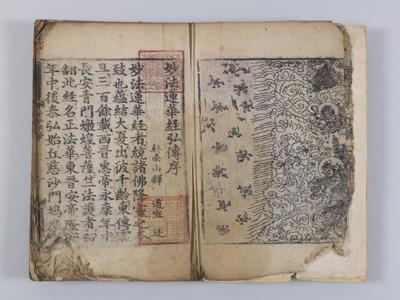 妙法蓮華經弘傳序
終南山釋 道宣 述
妙法蓮華經者統諸佛降靈之本
致也蘊結大夏出彼千齡東傳震
旦三百餘載西晉惠帝永康年中
長安青門燉煌菩薩竺法護者初
翻此經名正法華東晉安帝隆安
年中後秦弘始丘慈沙門鳩